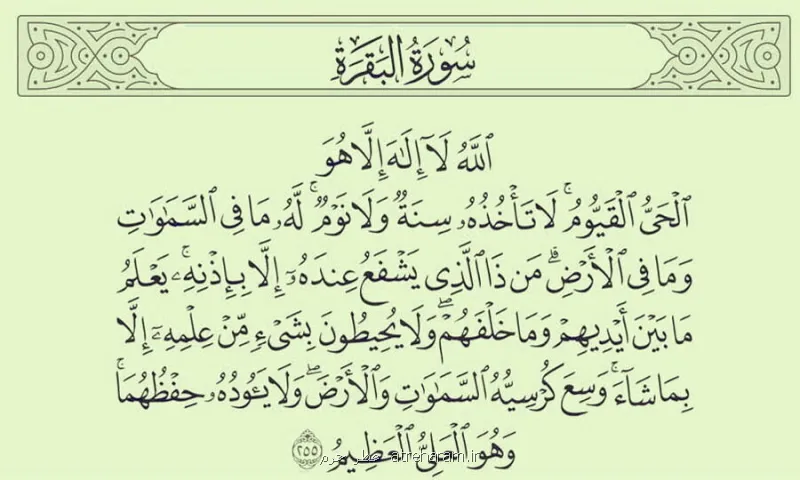 سُورَةُ البَقَرَةِ
ٱللَّهُ لَآ إِلَٰهَ إِلَّا هُوَ
ٱلْحَىُّ ٱلْقَيُّومُ ۚ لَا تَأْخُذُهُۥ سِنَةٌ وَلَا نَوْمٌ ۚ لَّهُۥ مَا فِى ٱلسَّمَٰوَٰتِ
وَمَا فِى ٱلْأَرْضِ ۗ مَن ذَا ٱلَّذِى يَشْفَعُ عِندَهُۥٓ إِلَّا بِإِذْنِهِۦ ۚ يَعْلَمُ
مَا بَيْنَ أَيْدِيهِمْ وَمَا خَلْفَهُمْ ۖ وَلَا يُحِيطُونَ بِشَىْءٍ مِّنْ عِلْمِهِۦٓ إِلَّا
بِمَا شَآءَ ۚ وَسِعَ كُرْسِيُّهُ ٱلسَّمَٰوَٰتِ وَٱلْأَرْضَ ۖ وَلَا يَـُٔودُهُۥ حِفْظُهُمَا ۚ
وَهُوَ ٱلْعَلِىُّ ٱلْعَظِيمُ ٢٥٥
عطر حرم atreharam.ir